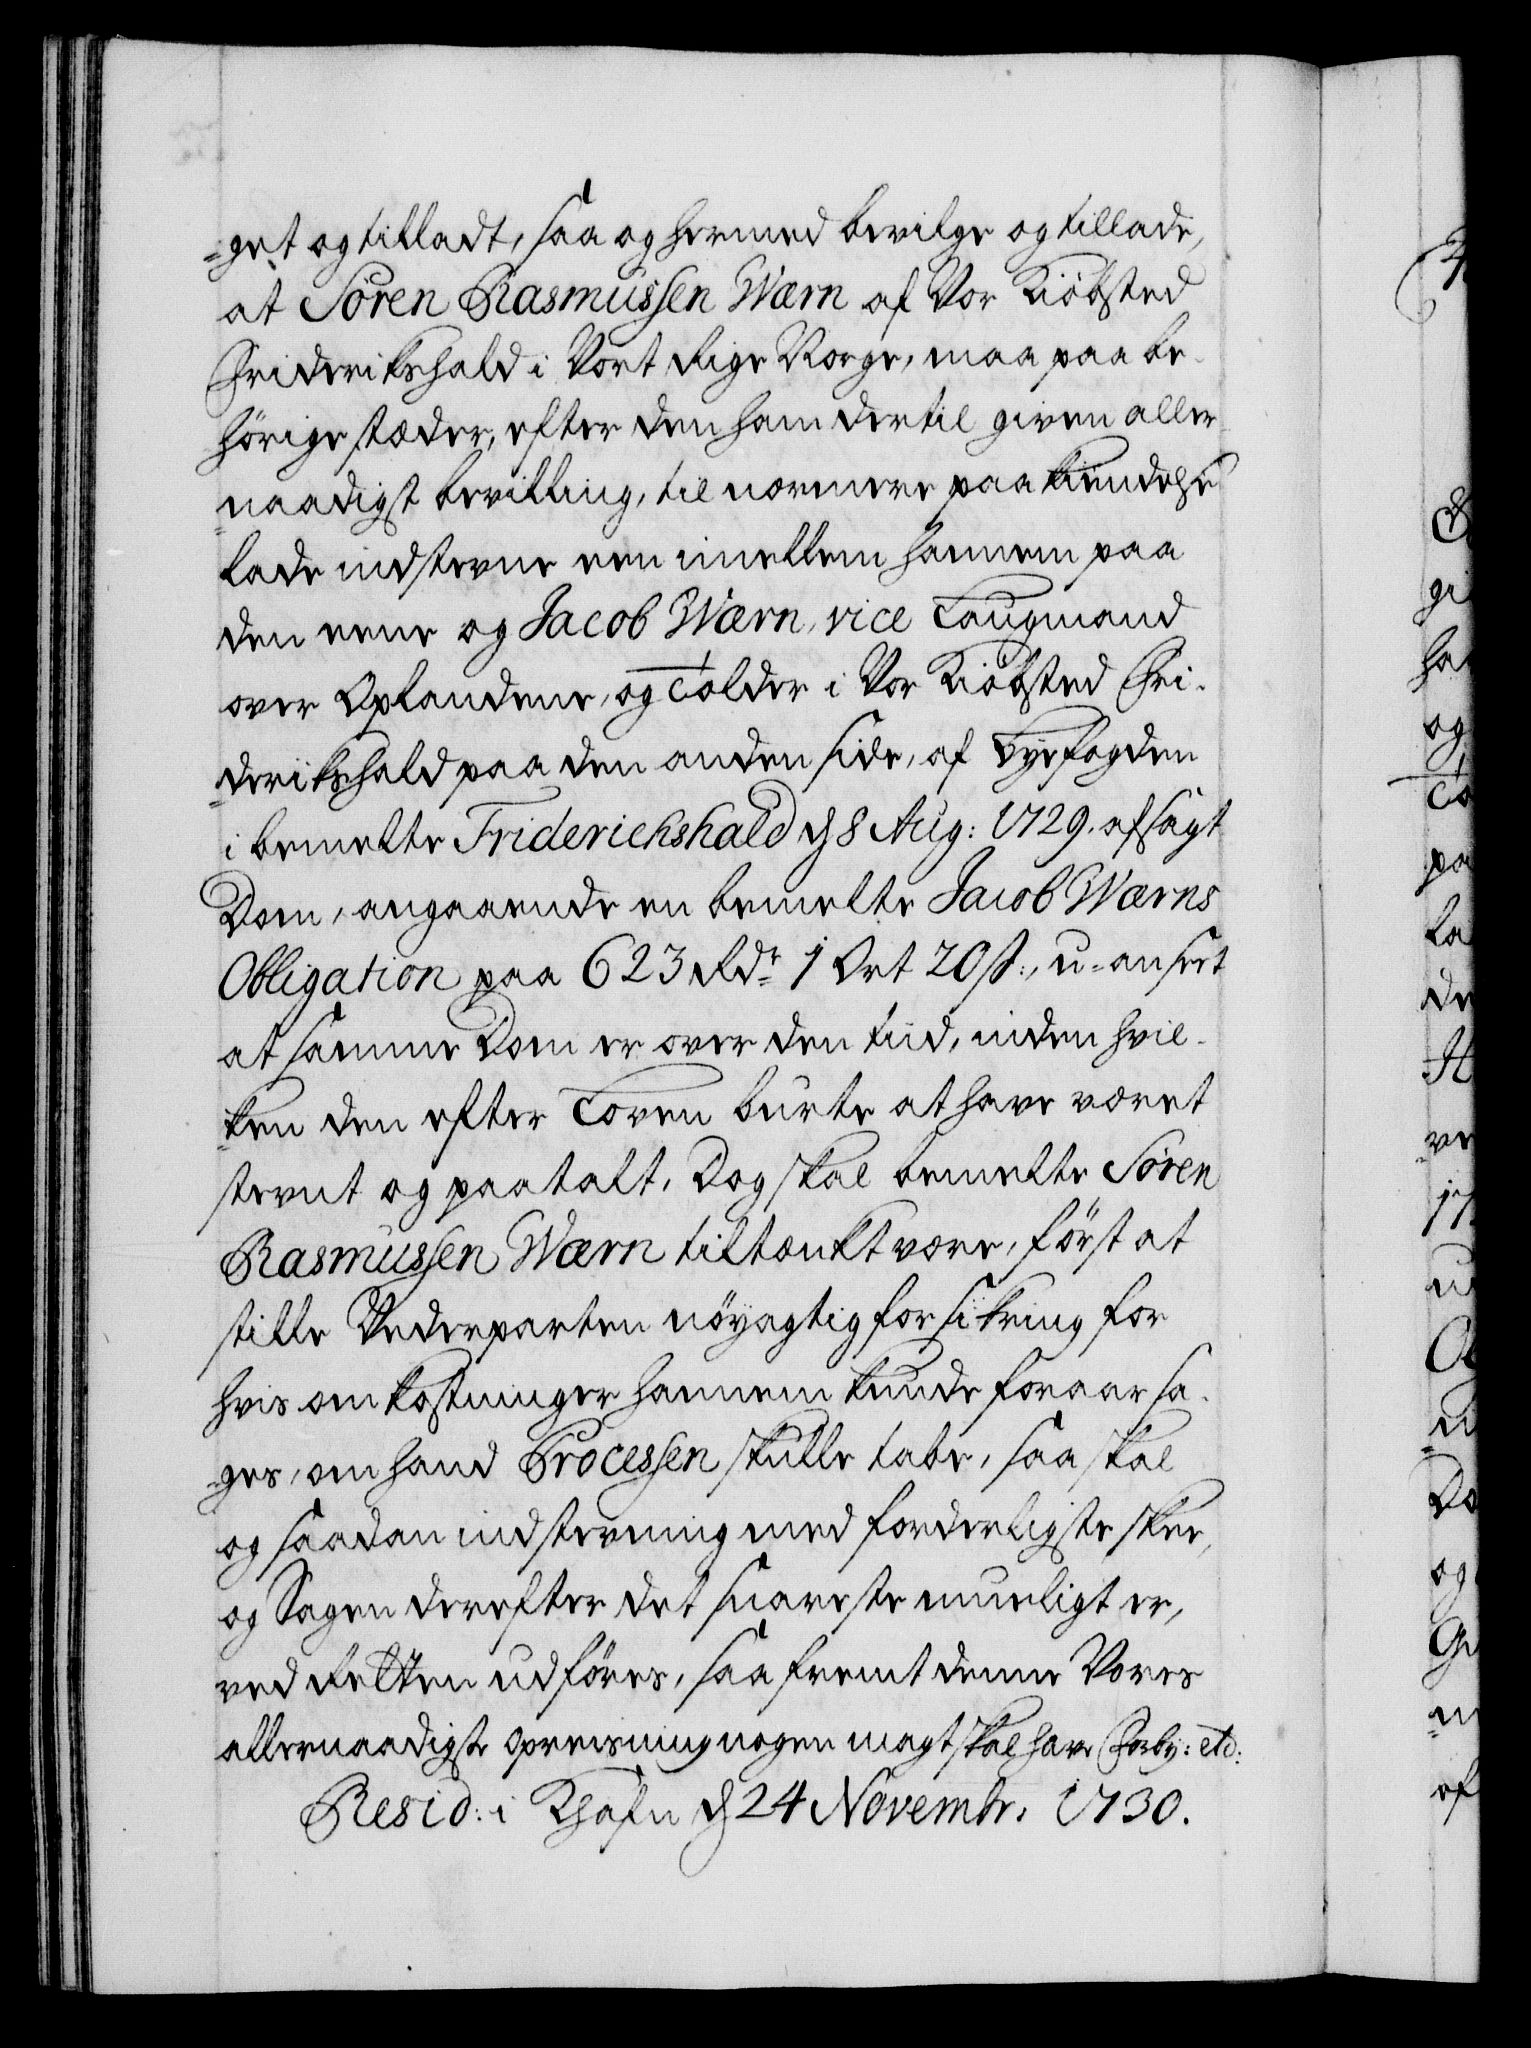 -get og tilladt, saa og hermed bevilge og tillade,
at Sören Rasmussen Wærn af Vor Kiöbsted
Friderikshald i Vort Rige Norge, maa paa be-
hörige stæder, efter den ham dertil given aller
naadigst bevilling, til nærmere paakiendelse
lade indstevne een imellem hannem paa
den eene og Jacob Wærn, vice Laugmand
over Oplandene, og Tolder i Vor Kiöbsted Fri-
-derikshald paa den anden side, af Byefogden
i bemelte Friderichshald d 8 Aug: 1729. afsagt
Dom, angaaende en bemelte Jacob Wærns
Obligation paa 623 Rdr 1 Ort 20 ß:, u-anseet
at samme Dom er over den tiid, inden hvil-
-ken den efter Loven burte at have været
stevnt og paatalt, Dog skal bemelte Sören
Rasmussen Wærn tiltænkt være, först at
stille Vederparten nöyagtig forsikring for
hvis omkostninger hannem kunde foraarsa-
-ges, om hand Processen skulle tabe, saa skal
og saadan indstevning med forderligste skee,
og Sagen derefter det snareste mueligt er,
ved Retten udföres, saafremt denne Vores
allernaadigste opreisning nogen magt skal have Forby: etc:
Resid: i Khafn d 24 Novembr. 1730.